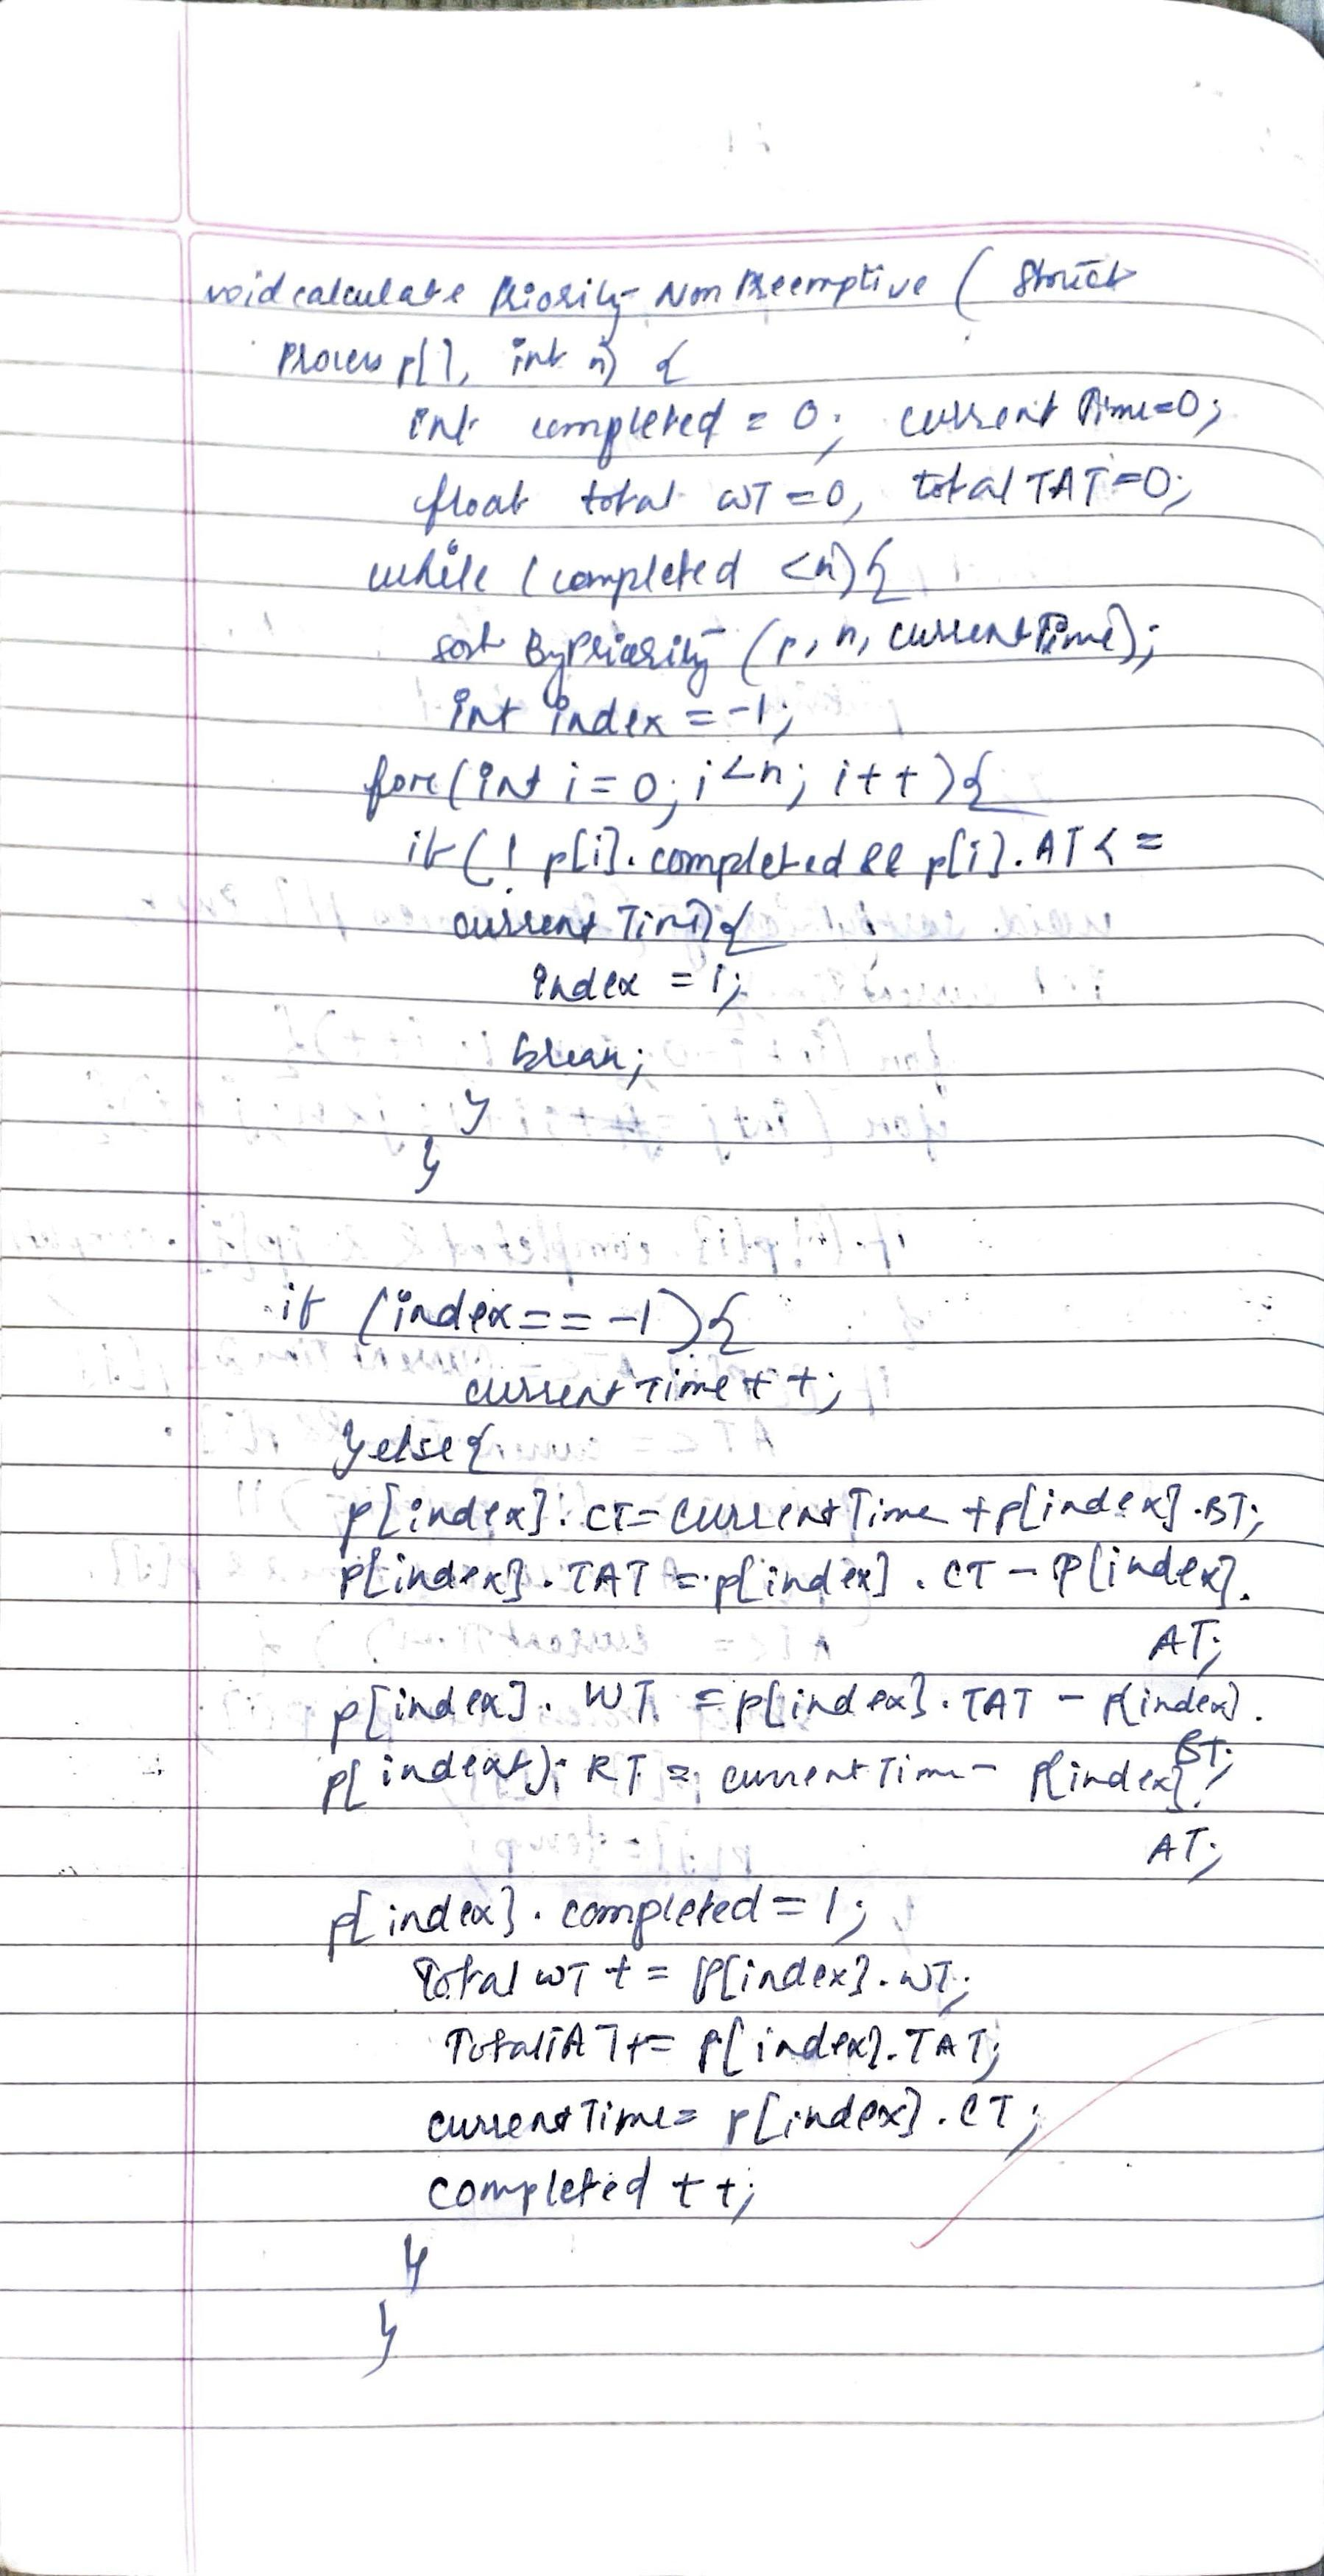 void calculate Priority NonPreemptive ( Struct
Process p[], int n) {
int completed = 0; current Time=0;
float total WT=0, total TAT=0;
while (completed <n){
sort ByPriority (p, n, currentTime);
int index = -1;
for(int i=0; i<n; i++){
if(! p[i].completed && p[i].AT<=
current Time){
index = i;
break;
}
}
if (index == -1){
currentTime++;
}else{
p[index].CT=CurrentTime +p[index].BT;
p[index].TAT = p[index].CT - P[index].
AT;
p[index].WT = p[index].TAT - p[index].
BT;
p[index].RT = currentTime - p[index].
AT;
p[index].completed = 1;
Total WT += P[index].WT;
TotalTAT+= P[index].TAT;
currentTime= p[index].CT;
completed ++;
}
}